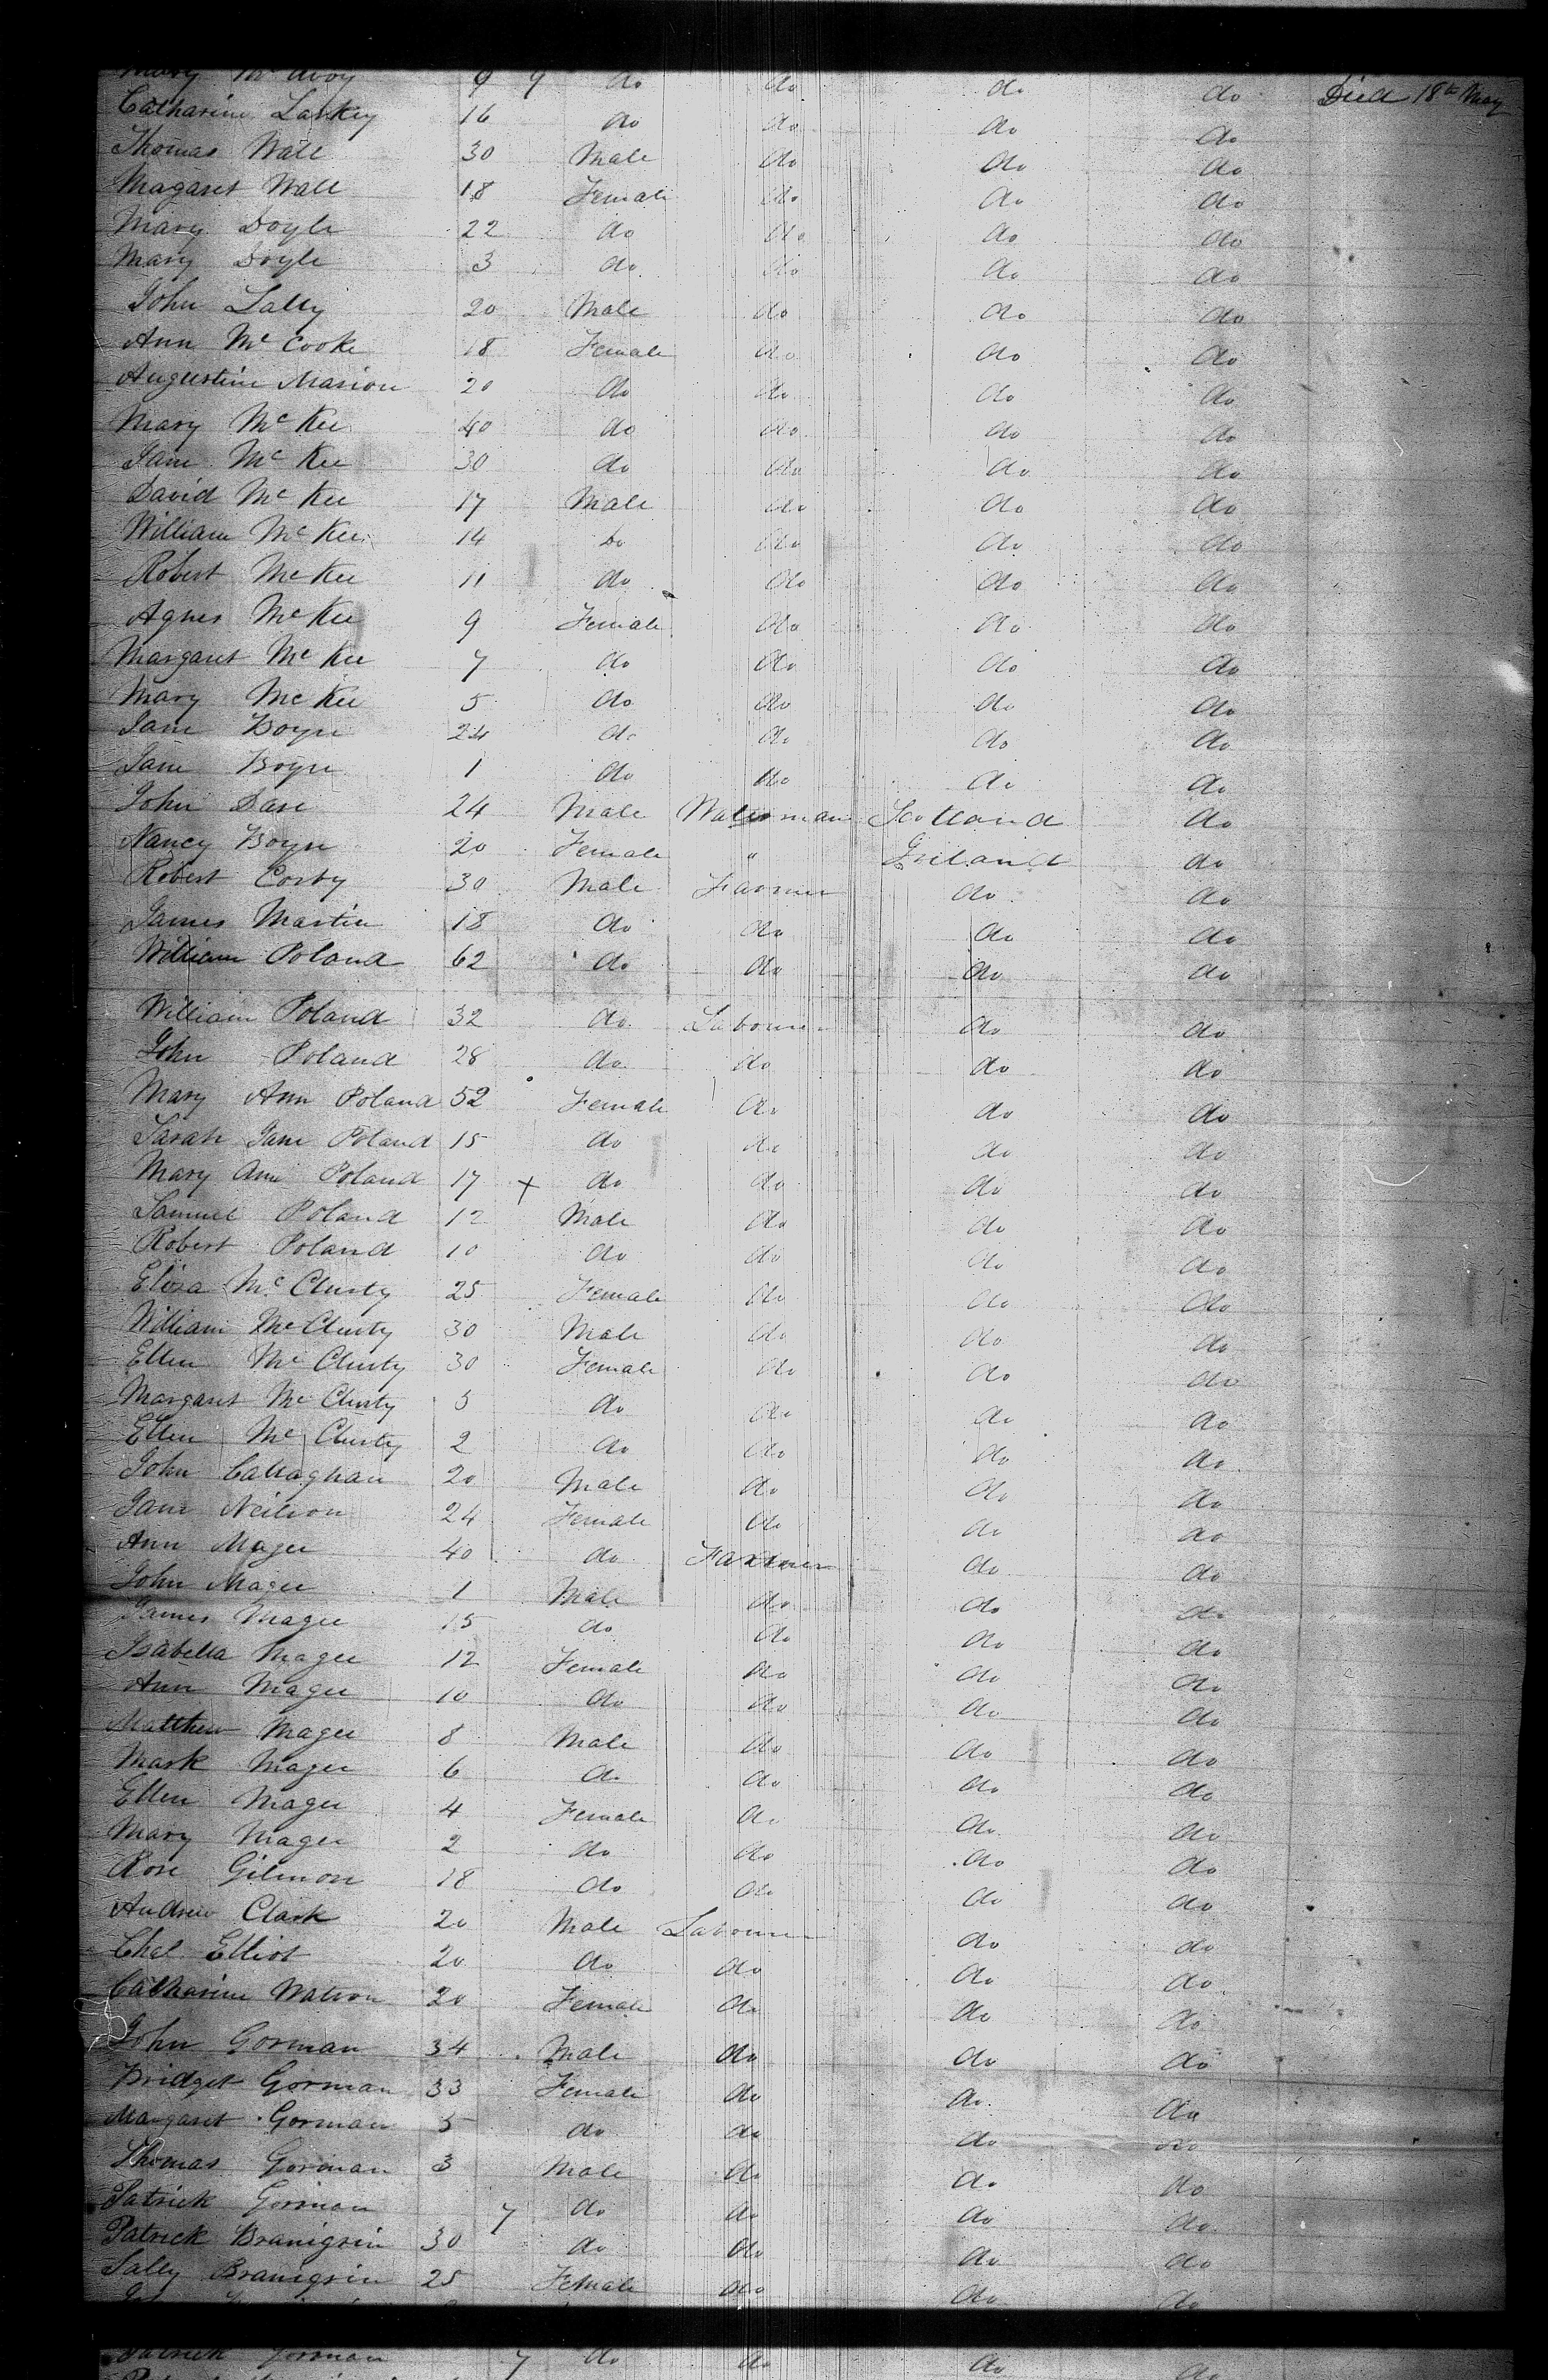 Mary McAvoy 9 9 do do do do Died 18th May
Catharine Laskey 16 do do do do
Thomas Wall 30 Male do do do
Magaret Wall 18 Female do do do
Mary Doyle 22 do do do do
Mary Doyle 3 do do do do
John Lally 20 Male do do do
Ann McCooke 18 Female do do do
Augustine Marion 20 do do do do
Mary McKee 40 do do do do
Jane McKee 30 do do do do
David McKee 17 Male do do do
William McKee 14 Do do do do
Robert McKee 11 do do do do
Agnes McKee 9 Female do do do
Margaret McKee 7 do do do do
Mary McKee 5 do do do do
Jane Boyse 24 do do do do
Jane Boyse 1 do do do do
John Dase 24 Male Waterman Scotland do
Nancy Boyse 20 Female " Ireland do
Robert Corby 30 Male Farmer do do
James Martin 18 do do do do
William Poland 62 do do do do
William Poland 32 do Labourer do do
John Poland 28 do do do do
Mary Ann Poland 52 Female do do do
Sarah Jane Poland 15 do do do do
Mary Ann Poland 17 + do do do do
Samuel Poland 12 Male do do do
Robert Poland 10 do do do do
Eliza McClusty 25 Female do do do
William McClusty 30 Male do do do
Ellen McClusty 30 Female do do do
Margaret McClusty 5 do do do do
Ellen McClusty 2 do do do do
John Callaghan 20 Male do do do
Jane Neilson 24 Female do do do
Ann Magee 40 do Farmer do do
John Magee 1 Male do do do
James Magee 15 do do do do
Isabella Magee 12 Female do do do
Ann Magee 10 do do do do
Matthew Magee 8 Male do do do
Mark Magee 6 do do do do
Ellen Magee 4 Female do do do
Mary Magee 2 do do do do
Rose Gilmore 18 do do do do
Andrew Clark 20 Male Labourer do do
Chal Elliot 20 do do do do
Catharine Watson 20 Female do do do
John Gorman 34 Male do do do
Bridget Gorman 33 Female do do do
Margaret Gorman 5 do do do do
Thomas Gorman 3 Male do do do
Patrick Gorman 7 do do do do
Patrick Branigein 30 do do do do
Sally Branigein 25 Female do do do
Patrick Gorman 7 do do do do